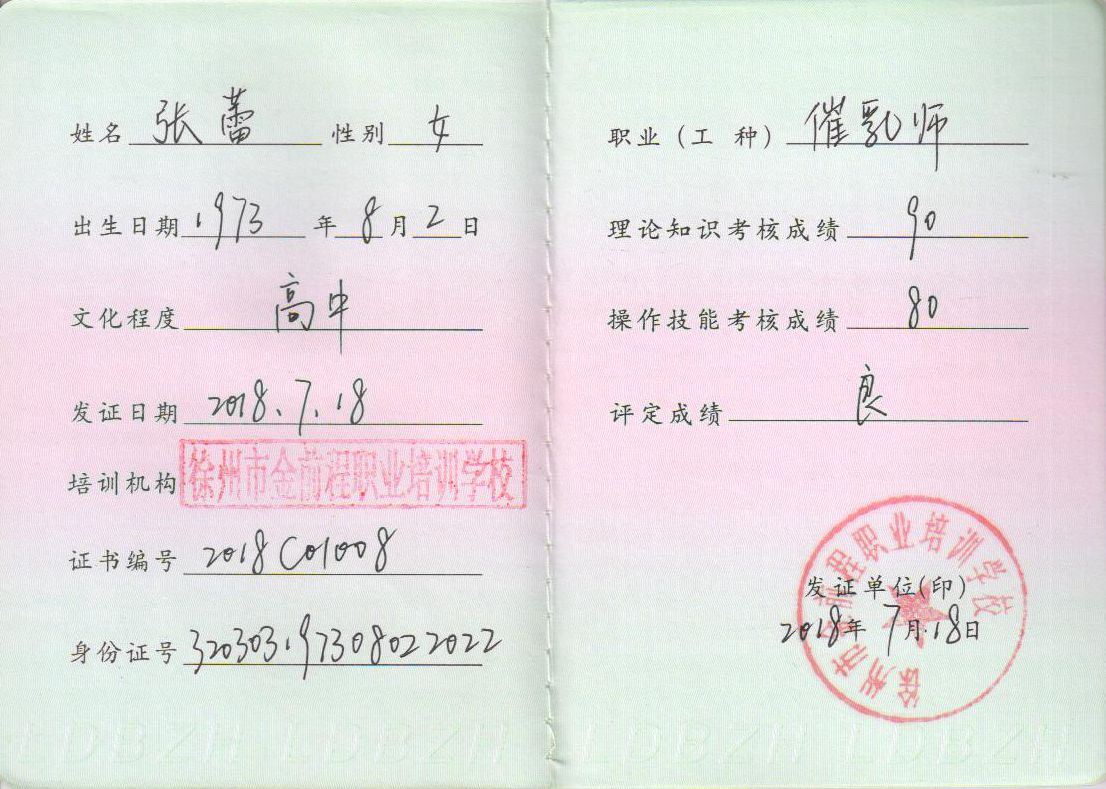 姓名 张蕾 性别 女
出生日期 1973 年 8 月 2 日
文化程度 高中
发证日期 2018.7.18
培训机构 徐州市金前程职业培训学校
证书编号 2018C01008
身份证号 320303197308022022
职业（工 种） 催乳师
理论知识考核成绩 90
操作技能考核成绩 80
评定成绩 良
徐州市金前程职业培训学校
发证单位(印)
2018年 7月18日
LDBZH LDBZH LDBZH LDBZH